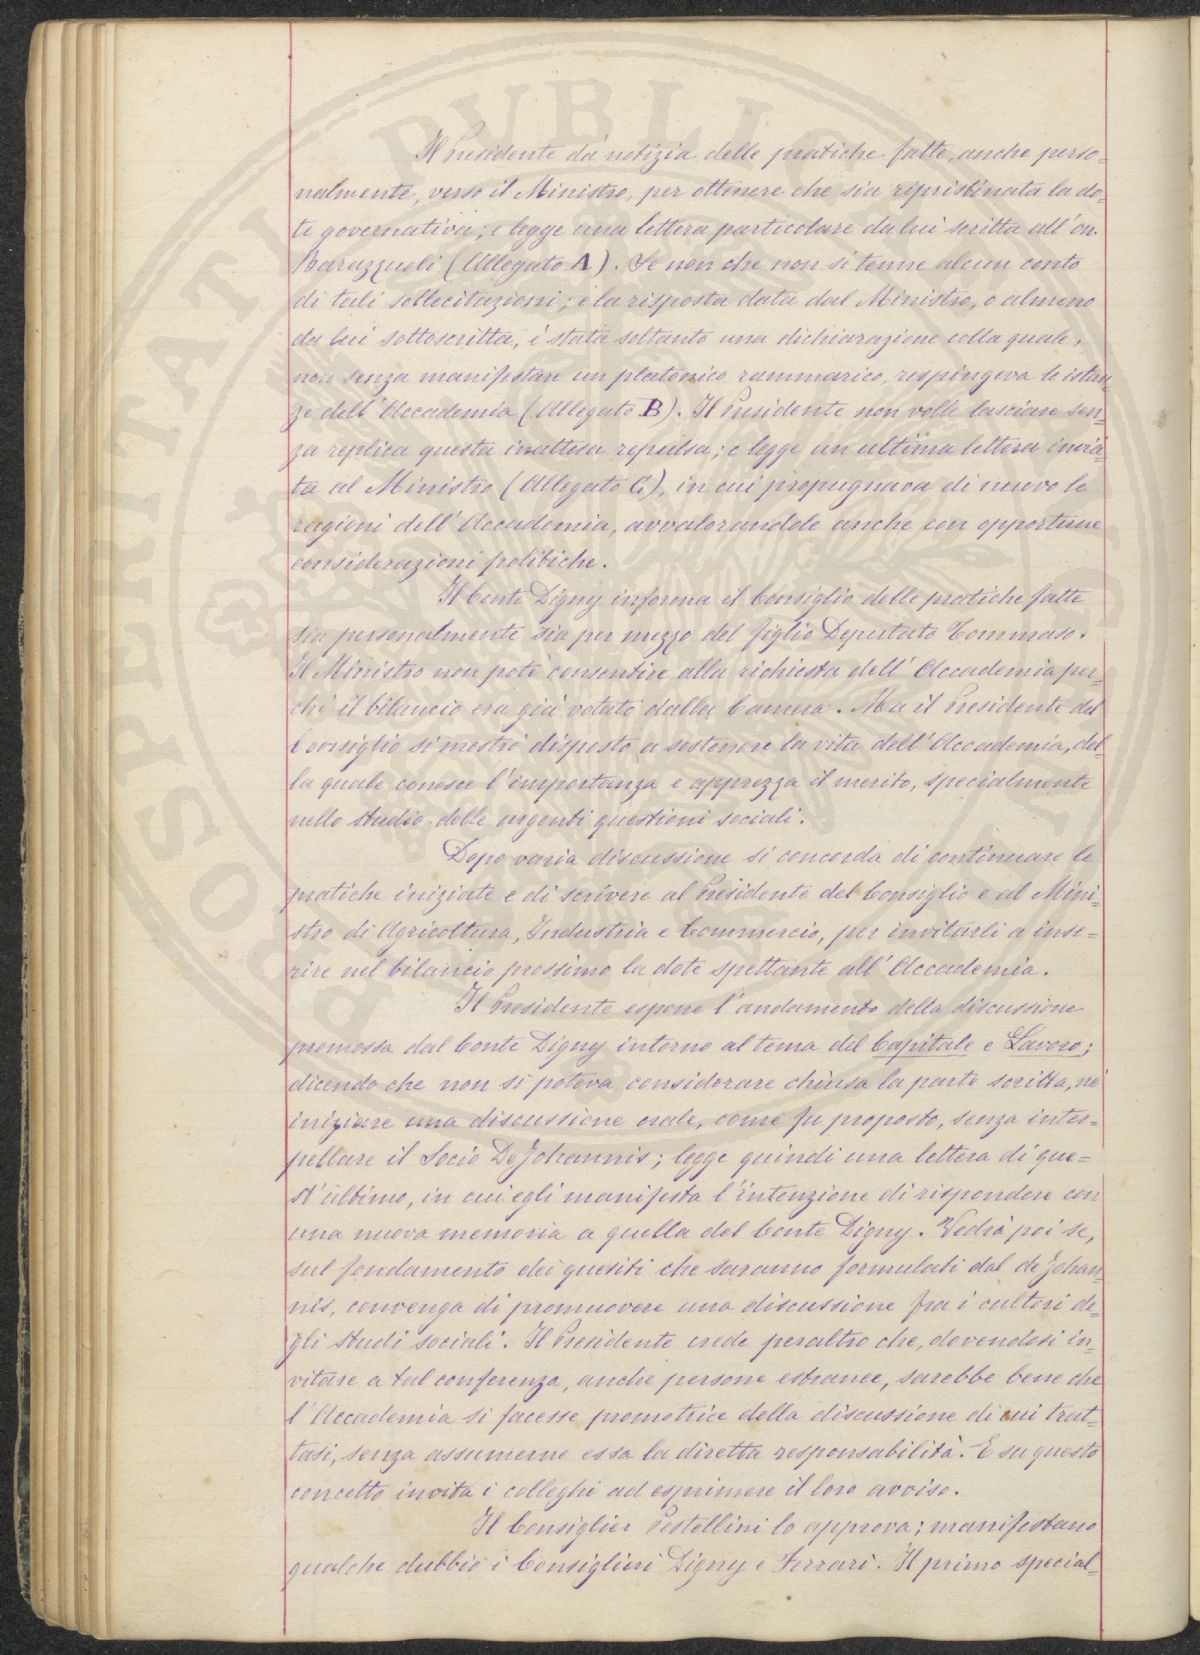 Il Presidente dà notizia delle pratiche fatte, anche perso=
nalmente, verso il Ministro, per ottenere che sia ripristinata la do=
te governativa; e legge una lettera particolare da lui scritta all'on.
Barazzuoli (Allegato A). Se non che non si tenne alcun conto
di tali sollecitazioni; e la risposta data dal Ministro, o almeno
da lui sottoscritta, è stata soltanto una dichiarazione colla quale,
non senza manifestare un platonico rammarico, respingeva le istan
ze dell'Accademia (Allegato B). Il Presidente non volle lasciare sen=
za replica questa inattesa repulsa; e legge un ultima lettera invia=
ta al Ministro (Allegato C), in cui propugnava di nuovo le
ragioni dell'Accademia, avvalorandole anche con opportune
considerazioni politiche.
Il Conte Digny informa il Consiglio delle pratiche fatte
sia personalmente sia per mezzo del figlio Deputato Tommaso.
Il Ministro non potè consentire alla richiesta dell'Accademia per=
chè il bilancio era già votato dalla Camera. Ma il Presidente del
Consiglio si mostrò disposto a sostenere la vita dell'Accademia, del=
la quale conosce l'importanza e apprezza il merito, specialmente
nello studio delle urgenti questioni sociali.
Dopo varia discussione si concorda di continuare le
pratiche iniziate e di scrivere al Presidente del Consiglio e al Mini=
stro di Agricoltura, Industria e Commercio, per invitarli a inse=
rire nel bilancio prossimo la dote spettante all'Accademia.
Il Presidente espone l'andamento della discussione
promossa dal Conte Digny intorno al tema del Capitale e Lavoro;
dicendo che non si poteva considerare chiusa la parte scritta, nè
iniziare una discussione orale, come fu proposto, senza inter=
pellare il Socio De Johannis; legge quindi una lettera di que=
st'ultimo, in cui egli manifesta l'intenzione di rispondere con
una nuova memoria a quella del Conte Digny. Vedrà poi se,
sul fondamento dei quesiti che saranno formulati dal de Johan=
nis, convenga di promuovere una discussione fra i cultori de=
gli studi sociali. Il Presidente crede peraltro che, dovendosi in=
vitare a tal conferenza, anche persone estranee, sarebbe bene che
l'Accademia si facesse promotrice della discussione di cui trat=
tasi, senza assumerne essa la diretta responsabilità. E su questo
concetto invita i colleghi ad esprimere il loro avviso.
Il Consiglier Pestellini lo approva; manifestano
qualche dubbio i Consiglieri Digny e Ferrari. Il primo special=